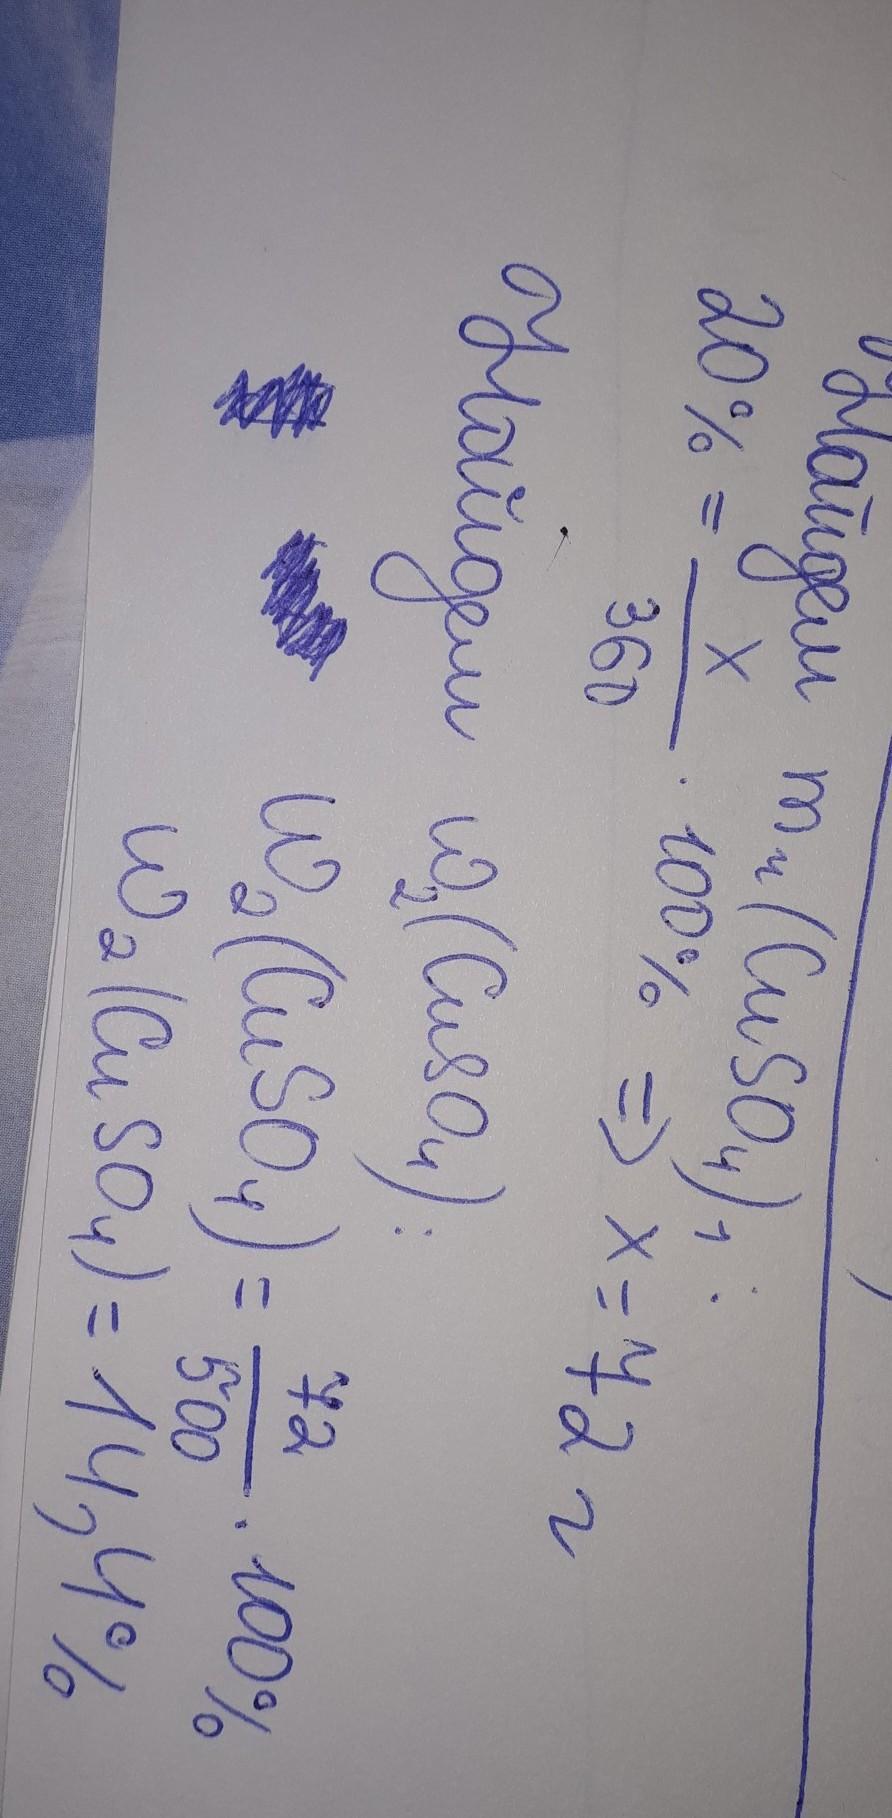 Найдем m₁(CuSO₄)₁:
20% = x/360 · 100% => x = 72 г
Найдем w₂(CuSO₄):
w₂(CuSO₄) = 72/500 · 100%
w₂(CuSO₄) = 14,4%